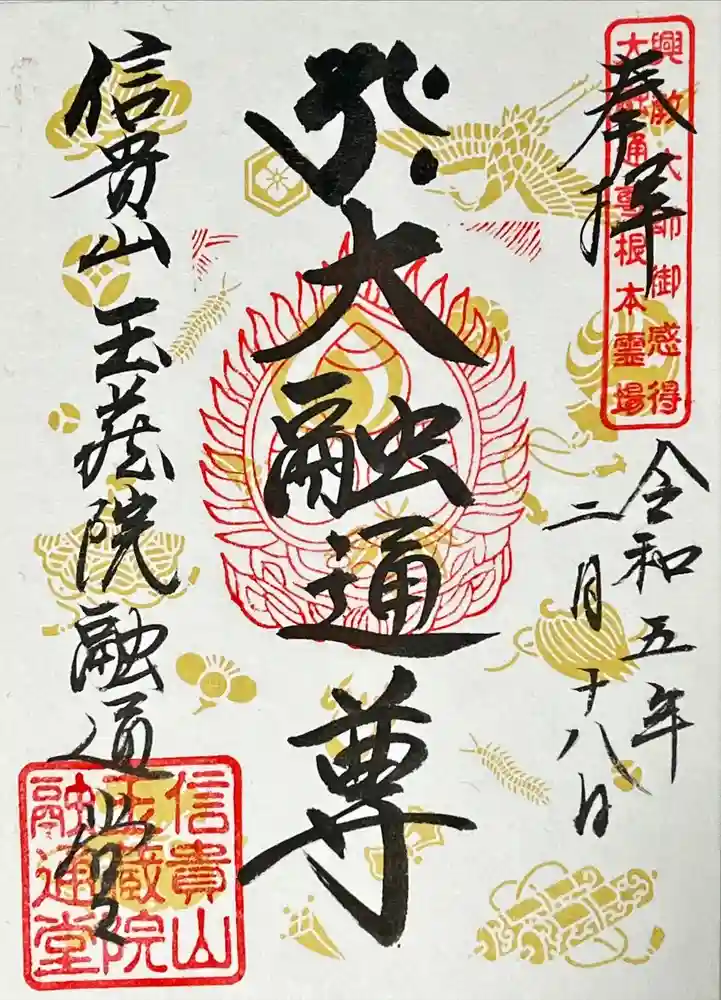 奉拝
興教大師御感得
大融通尊根本霊場
令和五年
二月十八日
大融通尊
信貴山玉蔵院融通堂
信貴山
玉蔵院
融通堂